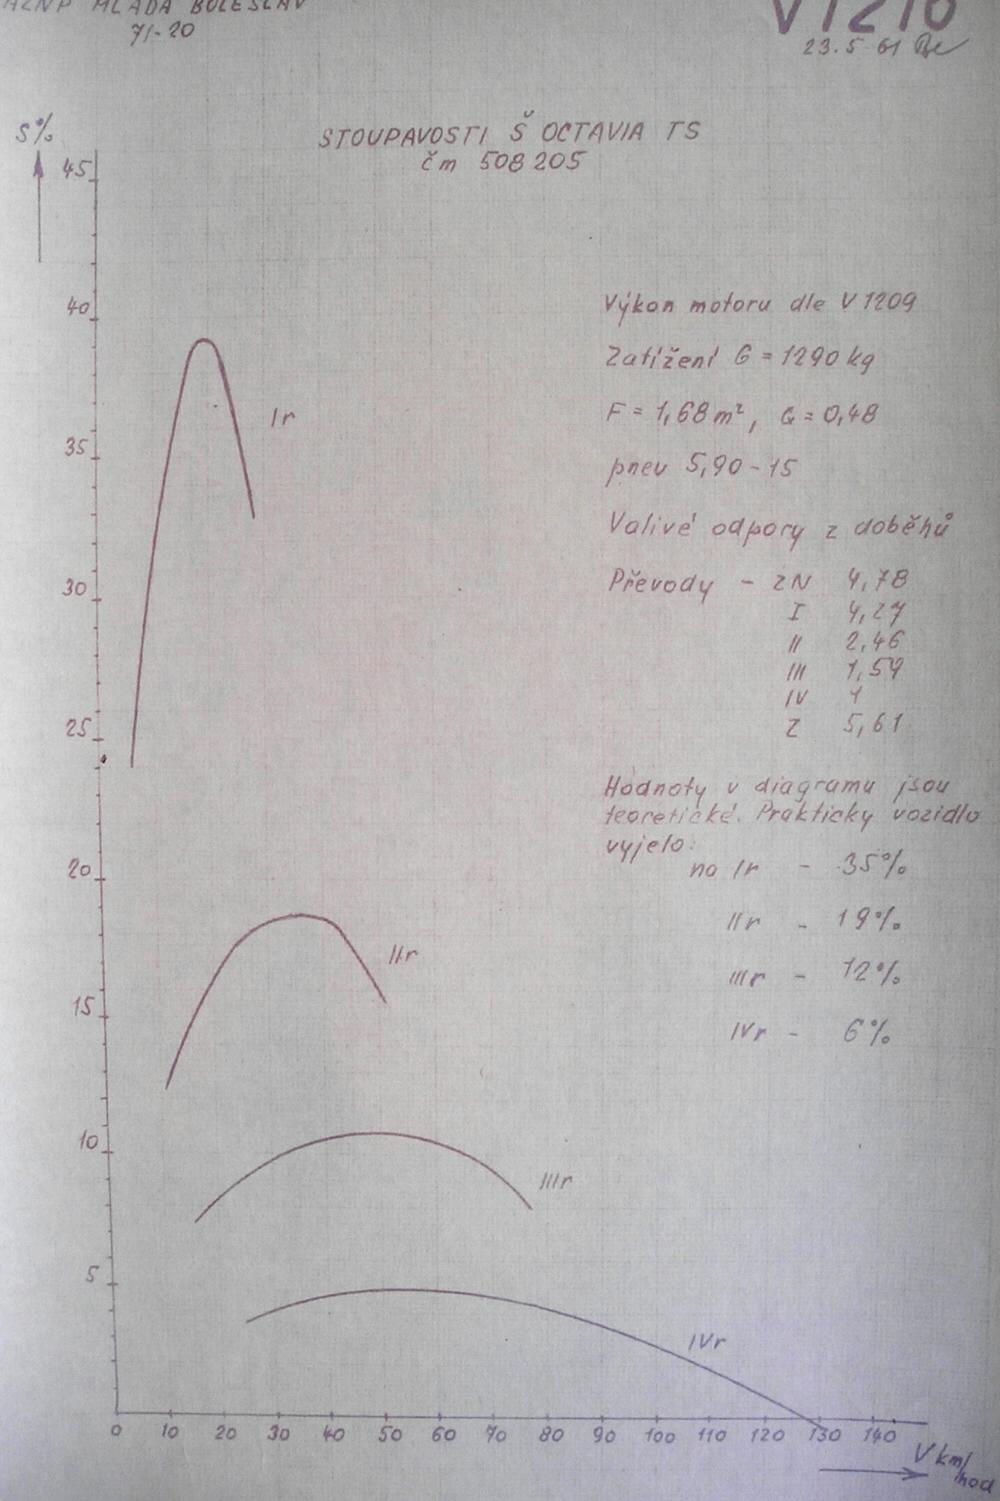 AZNP MLADÁ BOLESLAV
71-20
V1210
23.5 61
STOUPAVOSTI Š OCTAVIA TS
čm 508205
S%
45
40
35
30
25
20
15
10
5
Ir
IIr
IIIr
IVr
Výkon motoru dle V 1209
Zatížení G = 1290 kg
F = 1,68 m², G = 0,48
pnev 5,90-15
Valivé odpory z doběhů
Převody - ZN 4,78
I 4,27
II 2,46
III 1,59
IV 1
Z 5,61
Hodnoty v diagramu jsou
teoretické. Prakticky vozidlo
vyjelo:
na Ir - 35%
IIr - 19%
IIIr - 12%
IVr - 6%
0 10 20 30 40 50 60 70 80 90 100 110 120 130 140
V km/hod